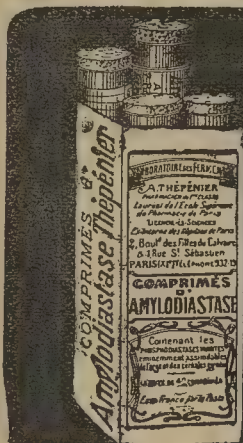 COMPRIMÉS d'
Amylodiastase Thépénier
LABORATOIRE DES FERMENTS
A. THÉPÉNIER
PHARMACIEN de 1re CLASSE
Lauréat de l'École Supérieure
de Pharmacie de Paris
LICENCIÉ ès SCIENCES
Ex-Interne des Hôpitaux de Paris
2, Bould des Filles du Calvaire
& 1 Rue St Sébastien
PARIS (XIe) TÉLÉPHONE 937-
COMPRIMÉS
D'
AMYLODIASTASE
Contenant les
éminemment assimilables
de l'orge et des céréales germées